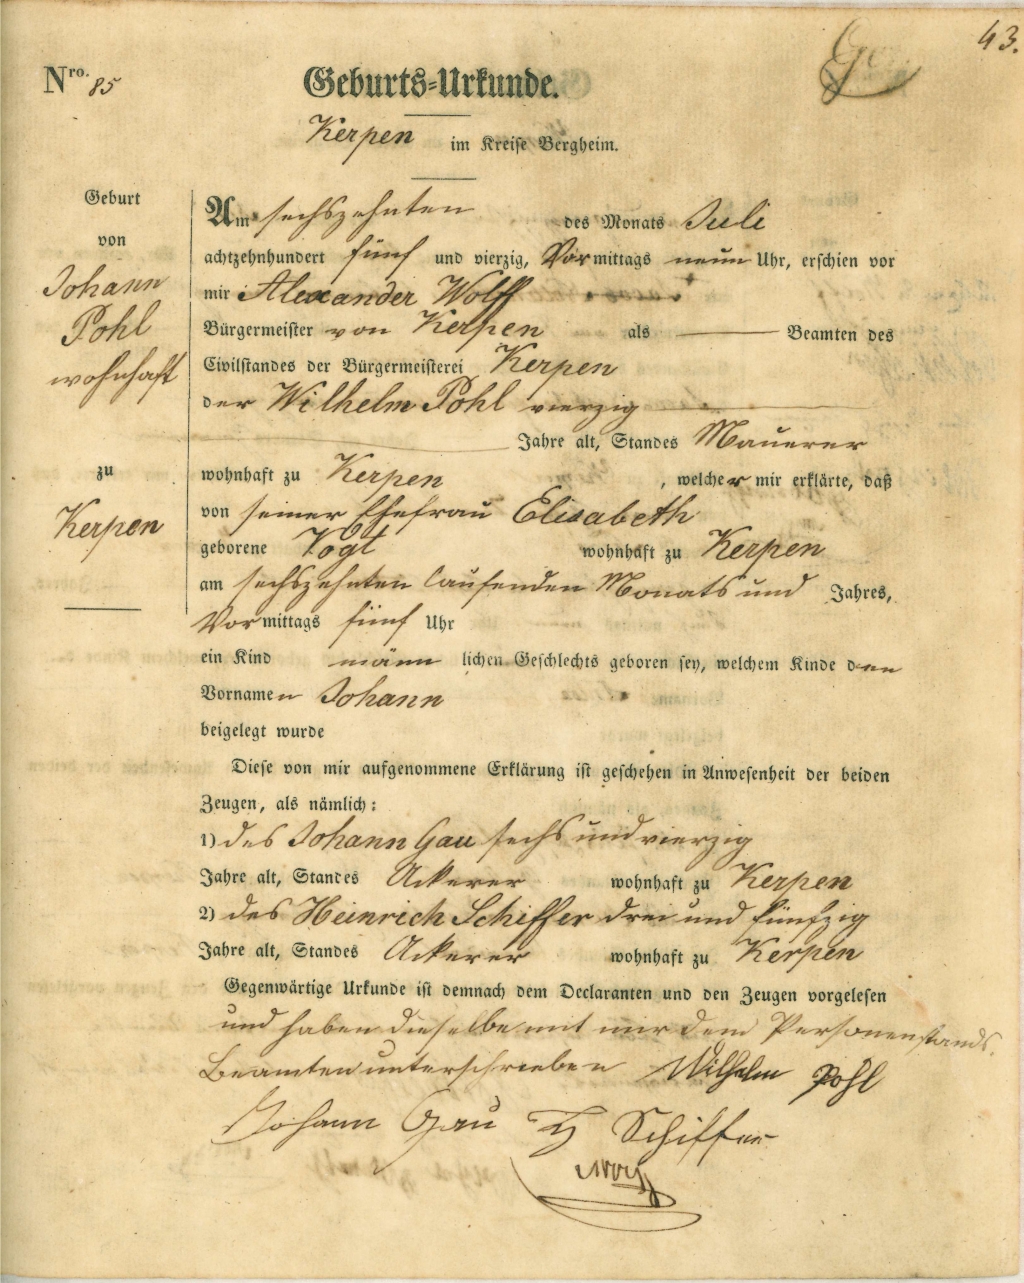 43.
Nro. 85
Geburts-Urkunde.
Kerpen im Kreise Bergheim.
Geburt
von
Johann
Pohl
wohnhaft
zu
Kerpen
Am sechszehnten des Monats Juli
achtzehnhundert fünf und vierzig, Vormittags neun Uhr, erschien vor
mir Alexander Wolff
Bürgermeister von Kerpen als Beamten des
Civilstandes der Bürgermeisterei Kerpen
der Wilhelm Pohl vierzig
Jahre alt, Standes Mauerer
wohnhaft zu Kerpen, welcher mir erklärte, daß
von seiner Ehefrau Elisabeth
geborene Vogt wohnhaft zu Kerpen
am sechszehnten laufenden Monats und Jahres,
Vormittags fünf Uhr
ein Kind männlichen Geschlechts geboren sey, welchem Kinde den
Vornamen Johann
beigelegt wurde
Diese von mir aufgenommene Erklärung ist geschehen in Anwesenheit der beiden
Zeugen, als nämlich:
1) des Johann Gau sechs und vierzig
Jahre alt, Standes Ackerer wohnhaft zu Kerpen
2) des Heinrich Schiffer drei und fünfzig
Jahre alt, Standes Ackerer wohnhaft zu Kerpen
Gegenwärtige Urkunde ist demnach dem Declaranten und den Zeugen vorgelesen
und haben dieselbe mit mir dem Personenstands
Beamten unterschrieben Wilhelm Pohl
Johann Gau H Schiffer
Wolff